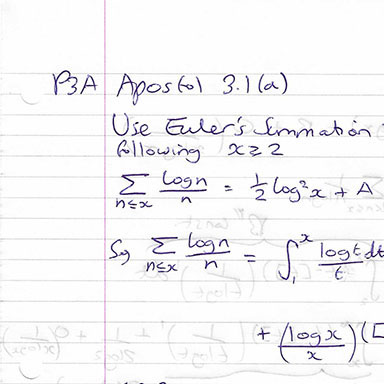 P3A Apostol 3.1(a)
Use Euler's Summation
following x ≥ 2
∑_{n≤x} log n / n = 1/2 log² x + A
So ∑_{n≤x} log n / n = ∫_1^x log t dt / t
+ (log x / x) (